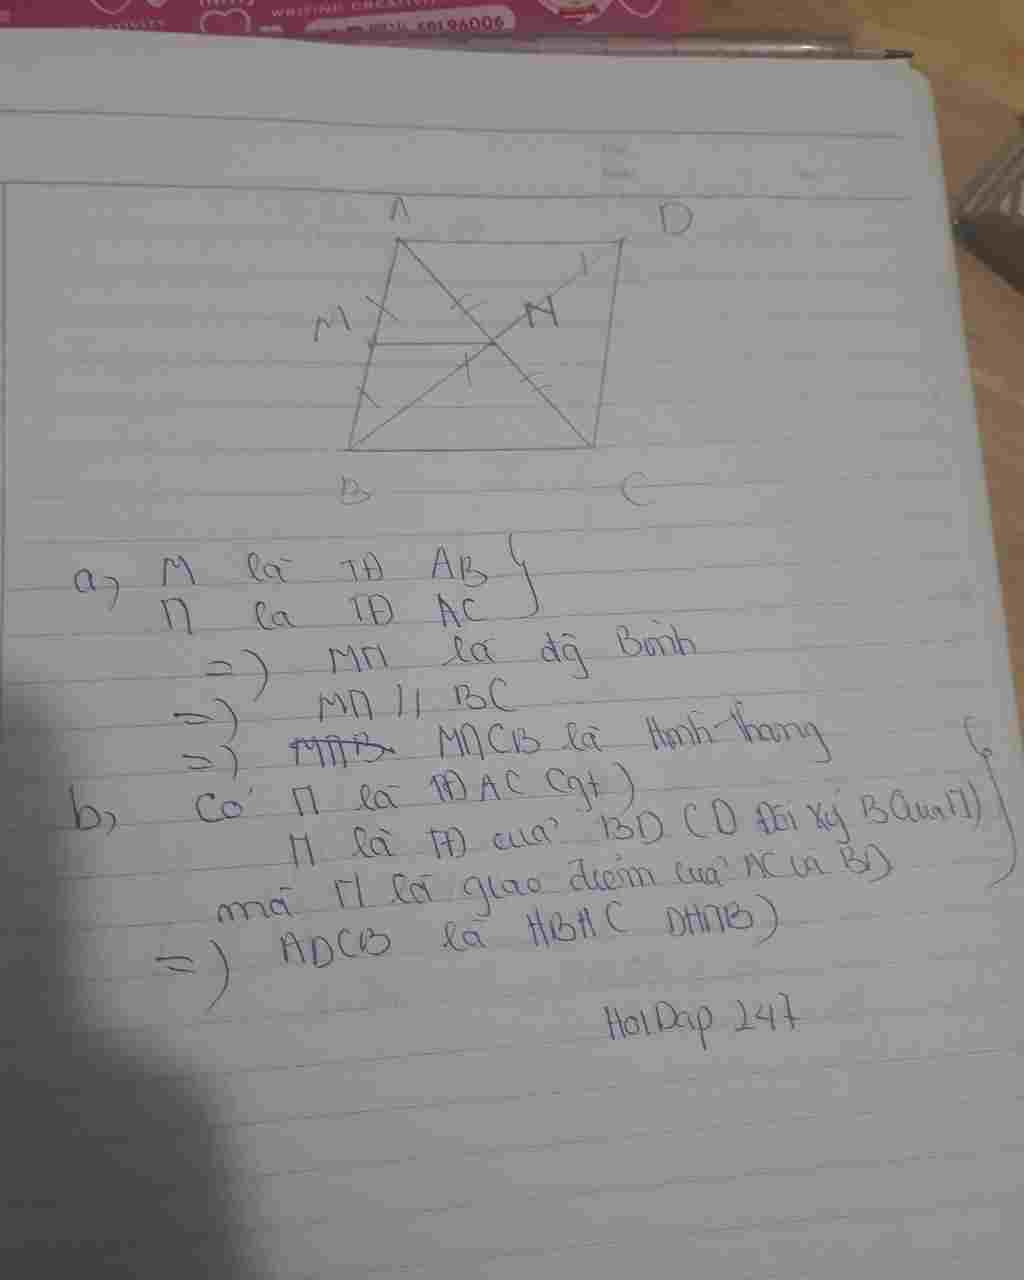 WRITING CREATIV
A
D
M
N
B
C
a, M là TĐ AB
N la TĐ AC
=) MN là đg Bình
=) MN // BC
=) MNB MNCB là Hình thang
b, Có N là TĐ AC (gt)
N là TĐ của BD (D Đối xứ B qua N)
mà N là giao điểm của AC và BD
=) ADCB là HBH ( DHNB)
HoiDap 247